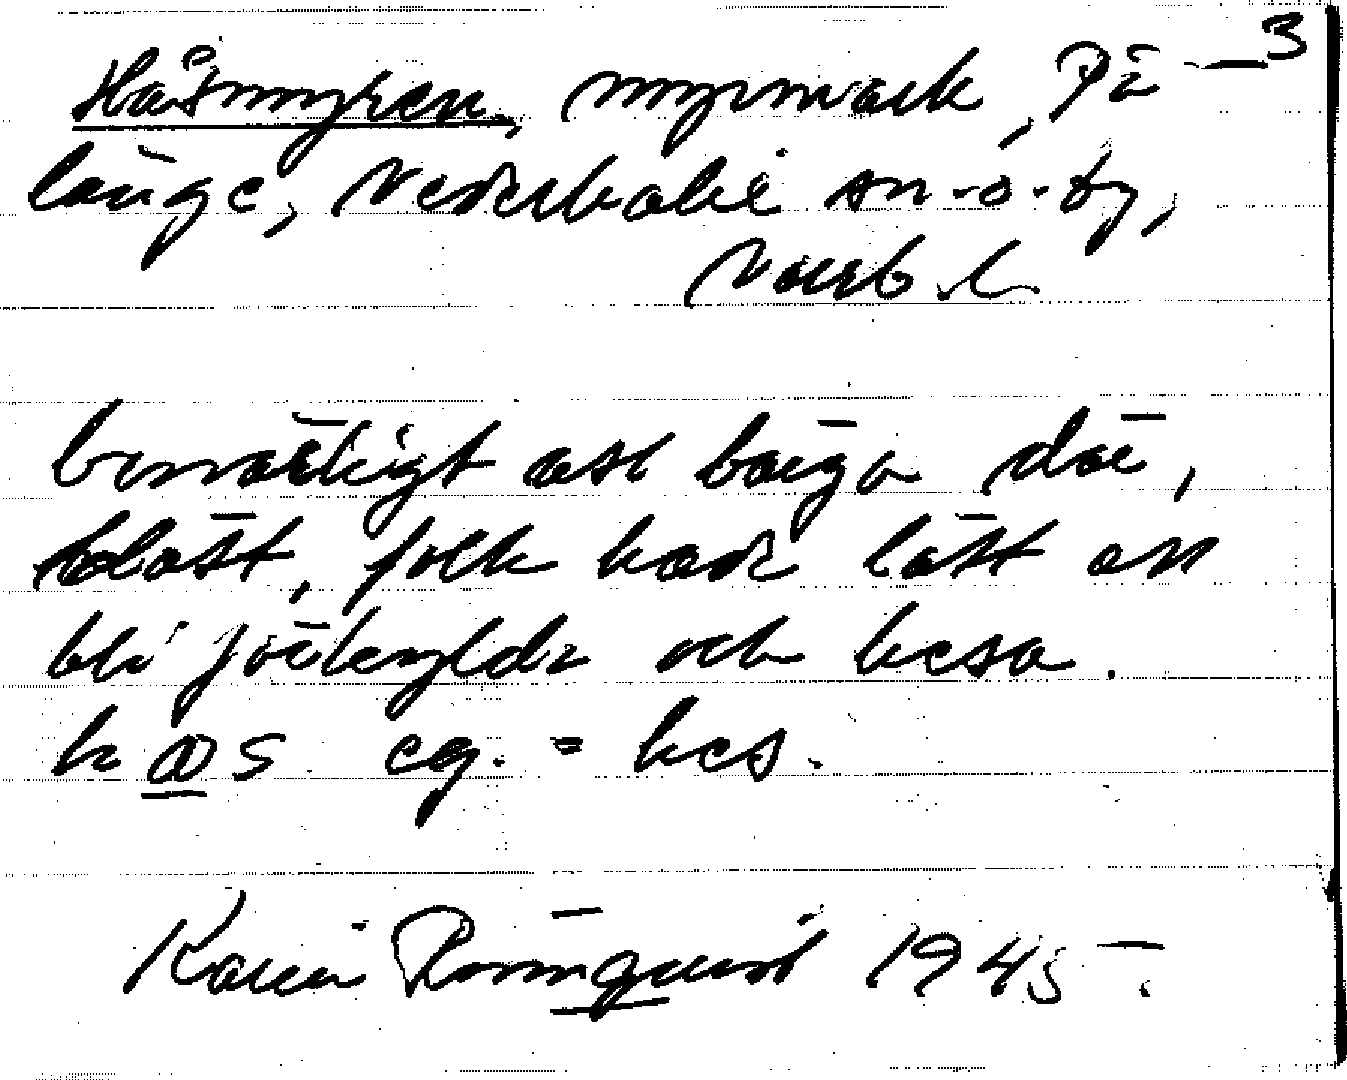 Håsmyren, myrmark, På- 3
länge, Nederkalix sn. o. by,
Norrb. l.
besvärligt att bärga där,
blött, folk hade lätt att
bli förkylda och hesa.
eg. = hes.
Karin Rönnquist 1945.